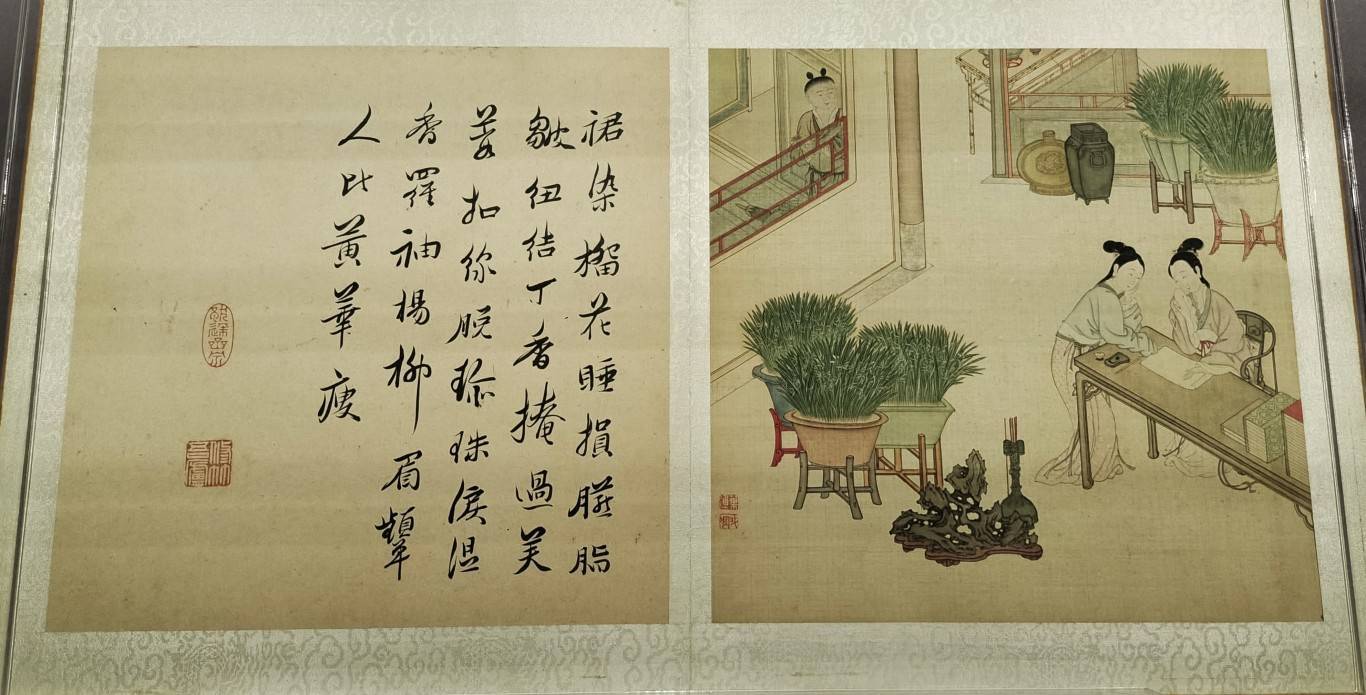 裙染榴花睡損臙脂
皺紐結丁香掩過芙
蓉扣線脫珎珠淚湿
香羅袖楊柳眉顰
人比黃華瘦